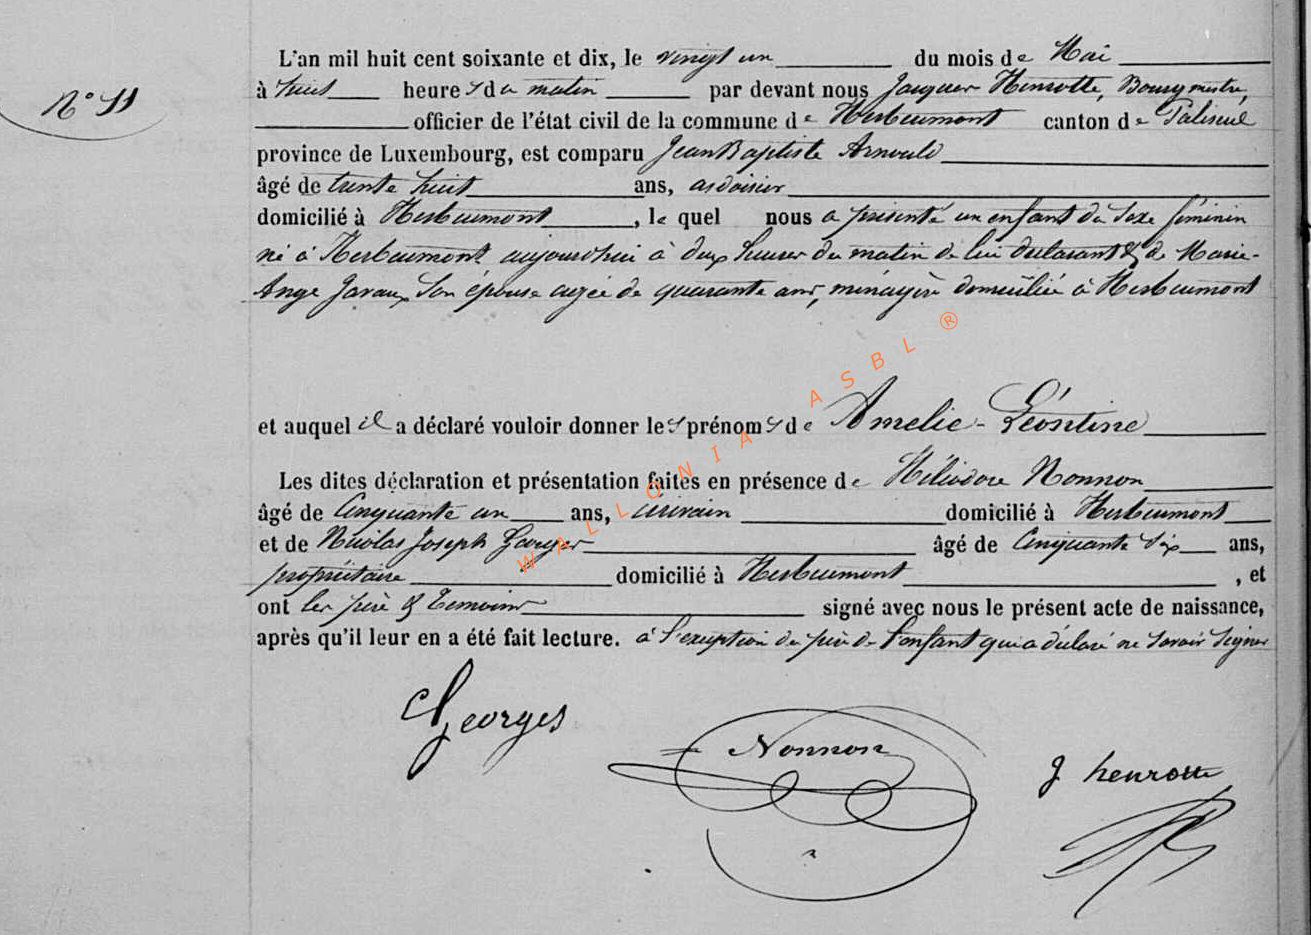 L'an mil huit cent soixante et dix, le vingt un du mois de Mai
N° 11
à huit heures du matin par devant nous Jacques Henrotte, Bourgmestre,
officier de l'état civil de la commune de Herbeumont canton de Paliseul
province de Luxembourg, est comparu Jean Baptiste Arnould
âgé de trente huit ans, ardoisier
domicilié à Herbeumont, lequel nous a présenté un enfant du Sexe féminin
né à Herbeumont aujourd'hui à deux heures du matin de lui déclarant & de Marie-
Ange Javaux Son épouse agée de quarante ans, ménagère domiciliée à Herbeumont
et auquel il a déclaré vouloir donner les prénoms de Amelie-Léontine
Les dites déclaration et présentation faites en présence de Héliodore Nonnon
âgé de Cinquante un ans, écrivain domicilié à Herbeumont
et de Nicolas Joseph Georges âgé de Cinquante Six ans,
propriétaire domicilié à Herbeumont, et
ont les père & Temoins signé avec nous le présent acte de naissance,
après qu'il leur en a été fait lecture. à l'exception du père de l'enfant qui a déclaré ne Savoir Signer
Georges
Nonnon
J henrotte
WALLONIA ASBL ®